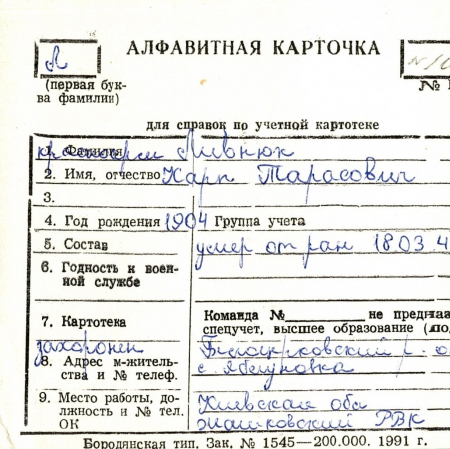 Л
АЛФАВИТНАЯ КАРТОЧКА
(первая бук-
ва фамилии)
№
для справок по учетной картотеке
1. Фамилия Ливнюк
2. Имя, отчество Карп Тарасович
3.
4. Год рождения 1904 Группа учета
5. Состав умер от ран 18 03 4
6. Годность к воен-
ной службе
7. Картотека
Команда № не предна
спецучет, высшее образование (
захоронен
8. Адрес м-житель-
ства и № телеф.
с. Яблуновка
9. Место работы, до-
лжность и № тел.
ОК
Киевская обл
РВК
Бородянская тип. Зак. № 1545—200.000. 1991 г.